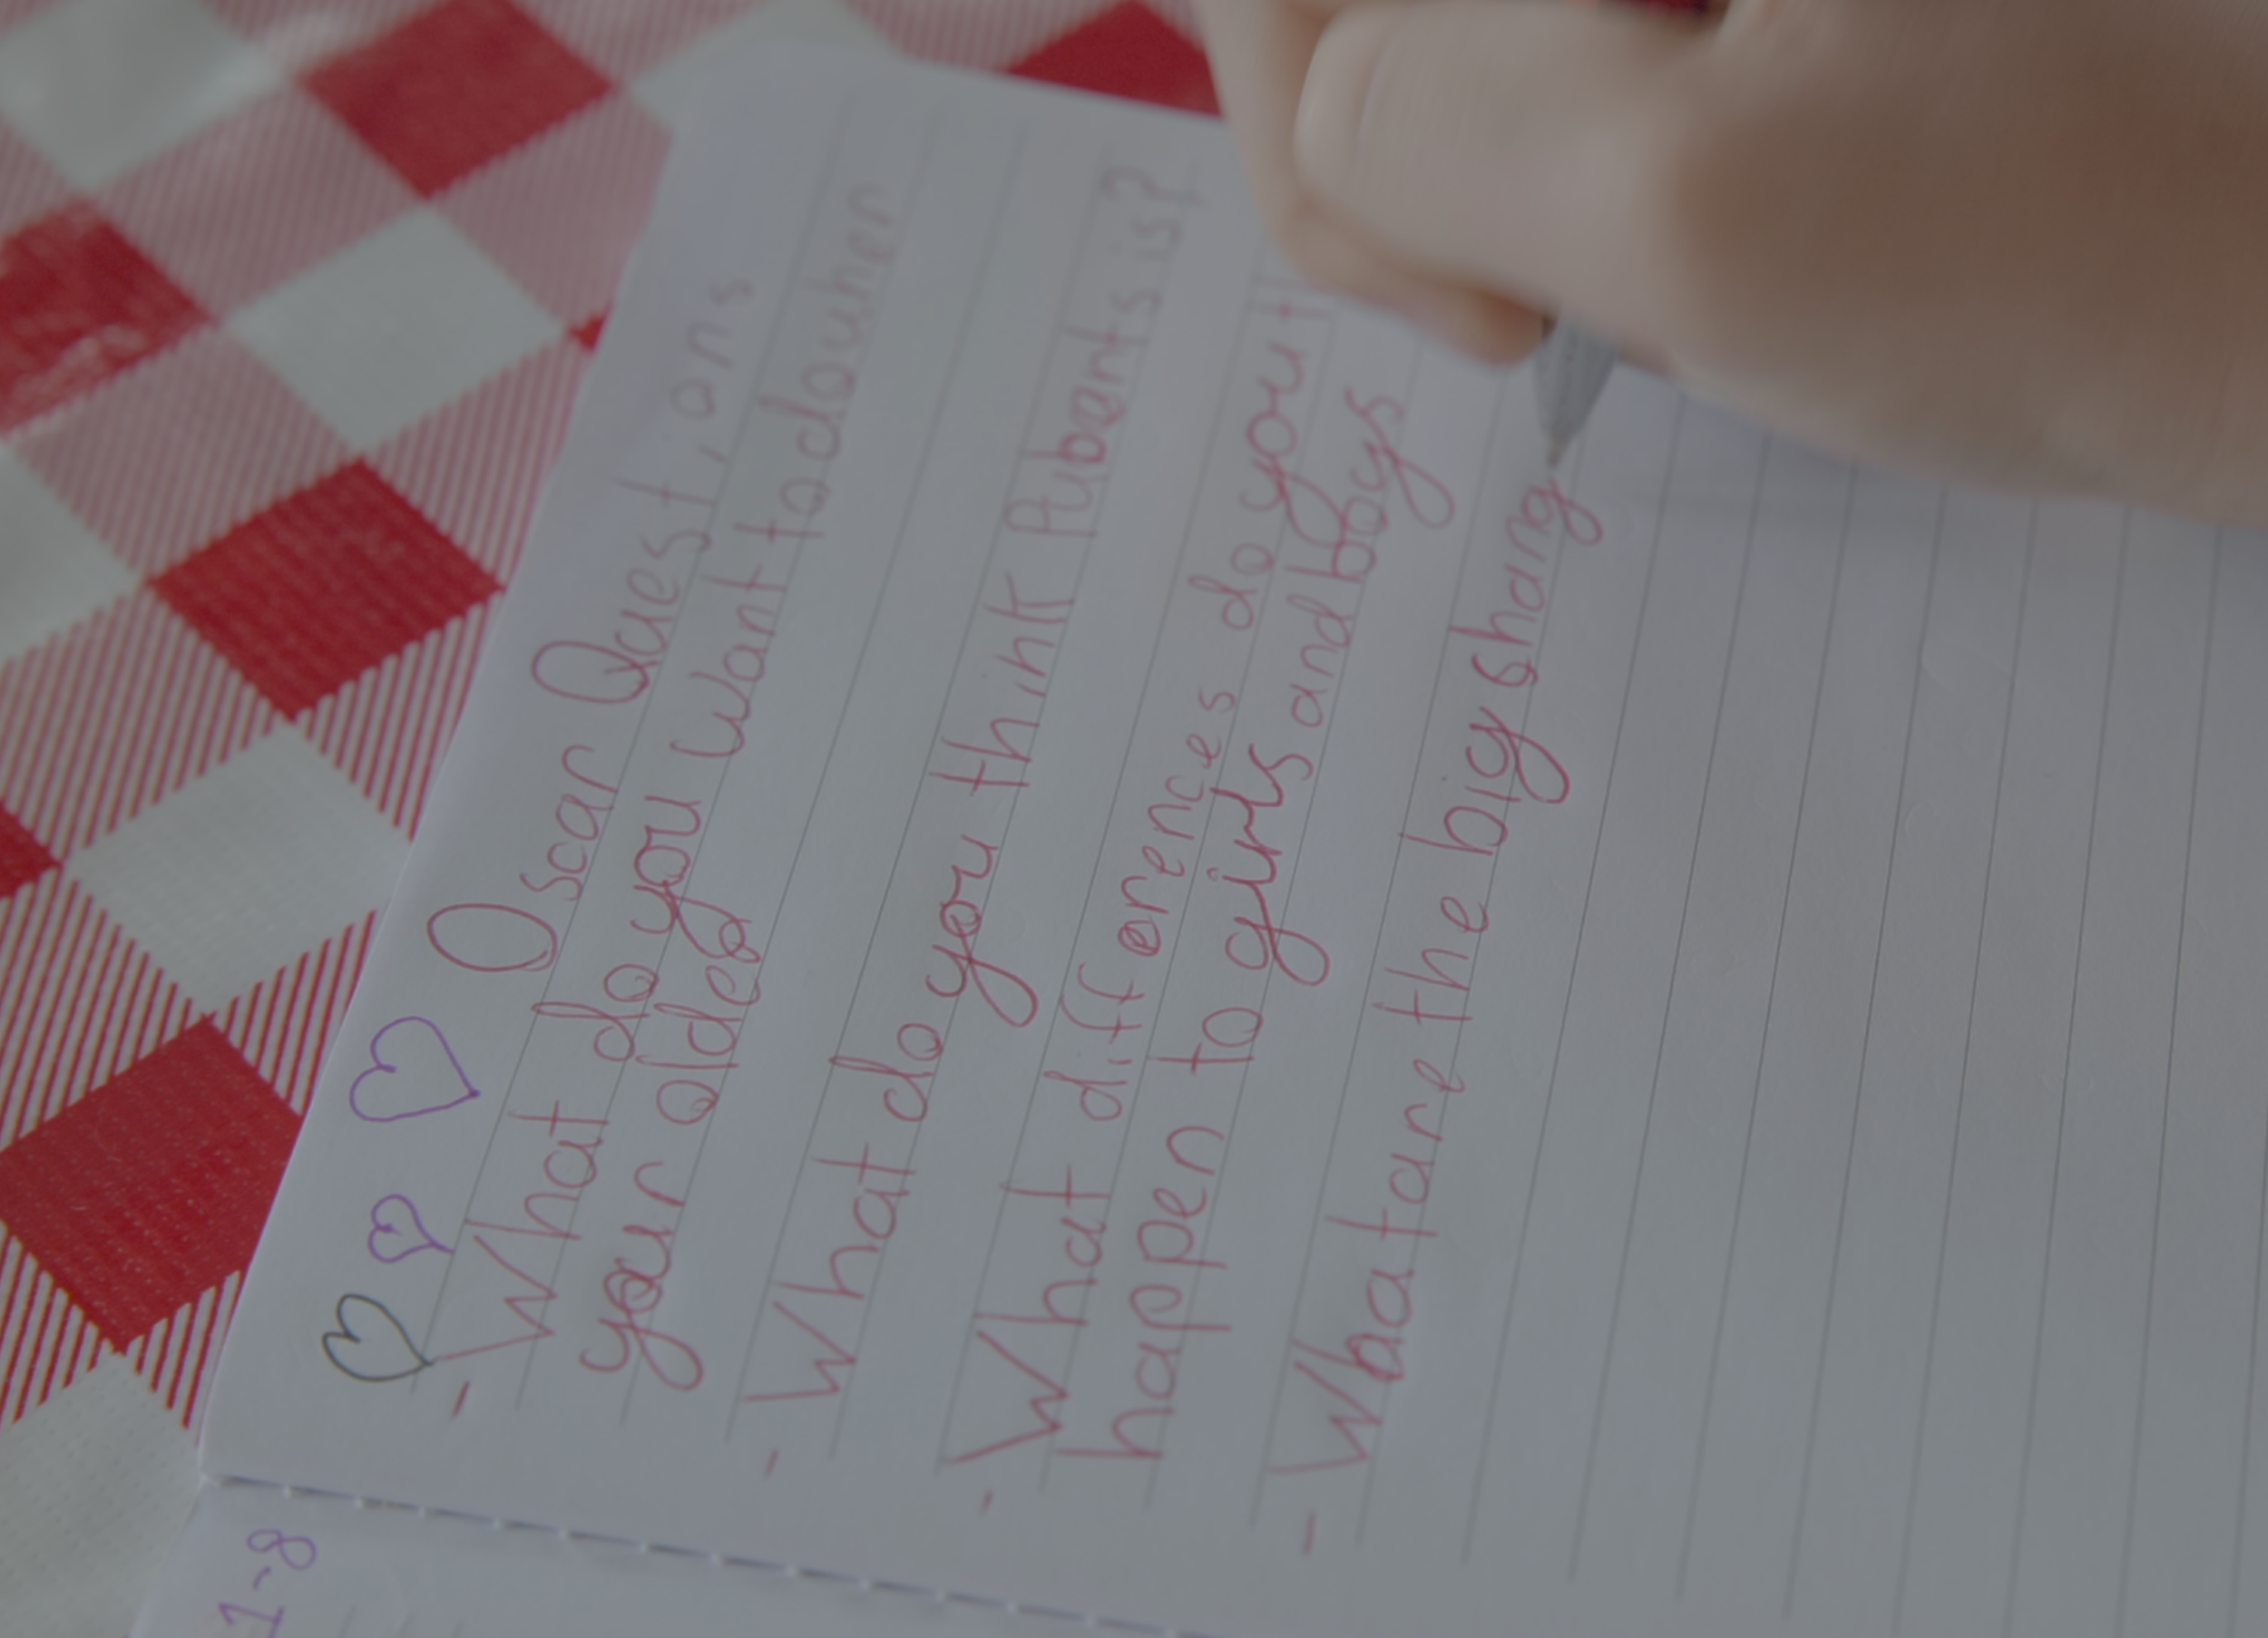 Oscar Questions
- What do you want to do when
your older
- What do you think Pubents is?
- What differences do you
happen to girls and boys
- What are the big shang
1-8